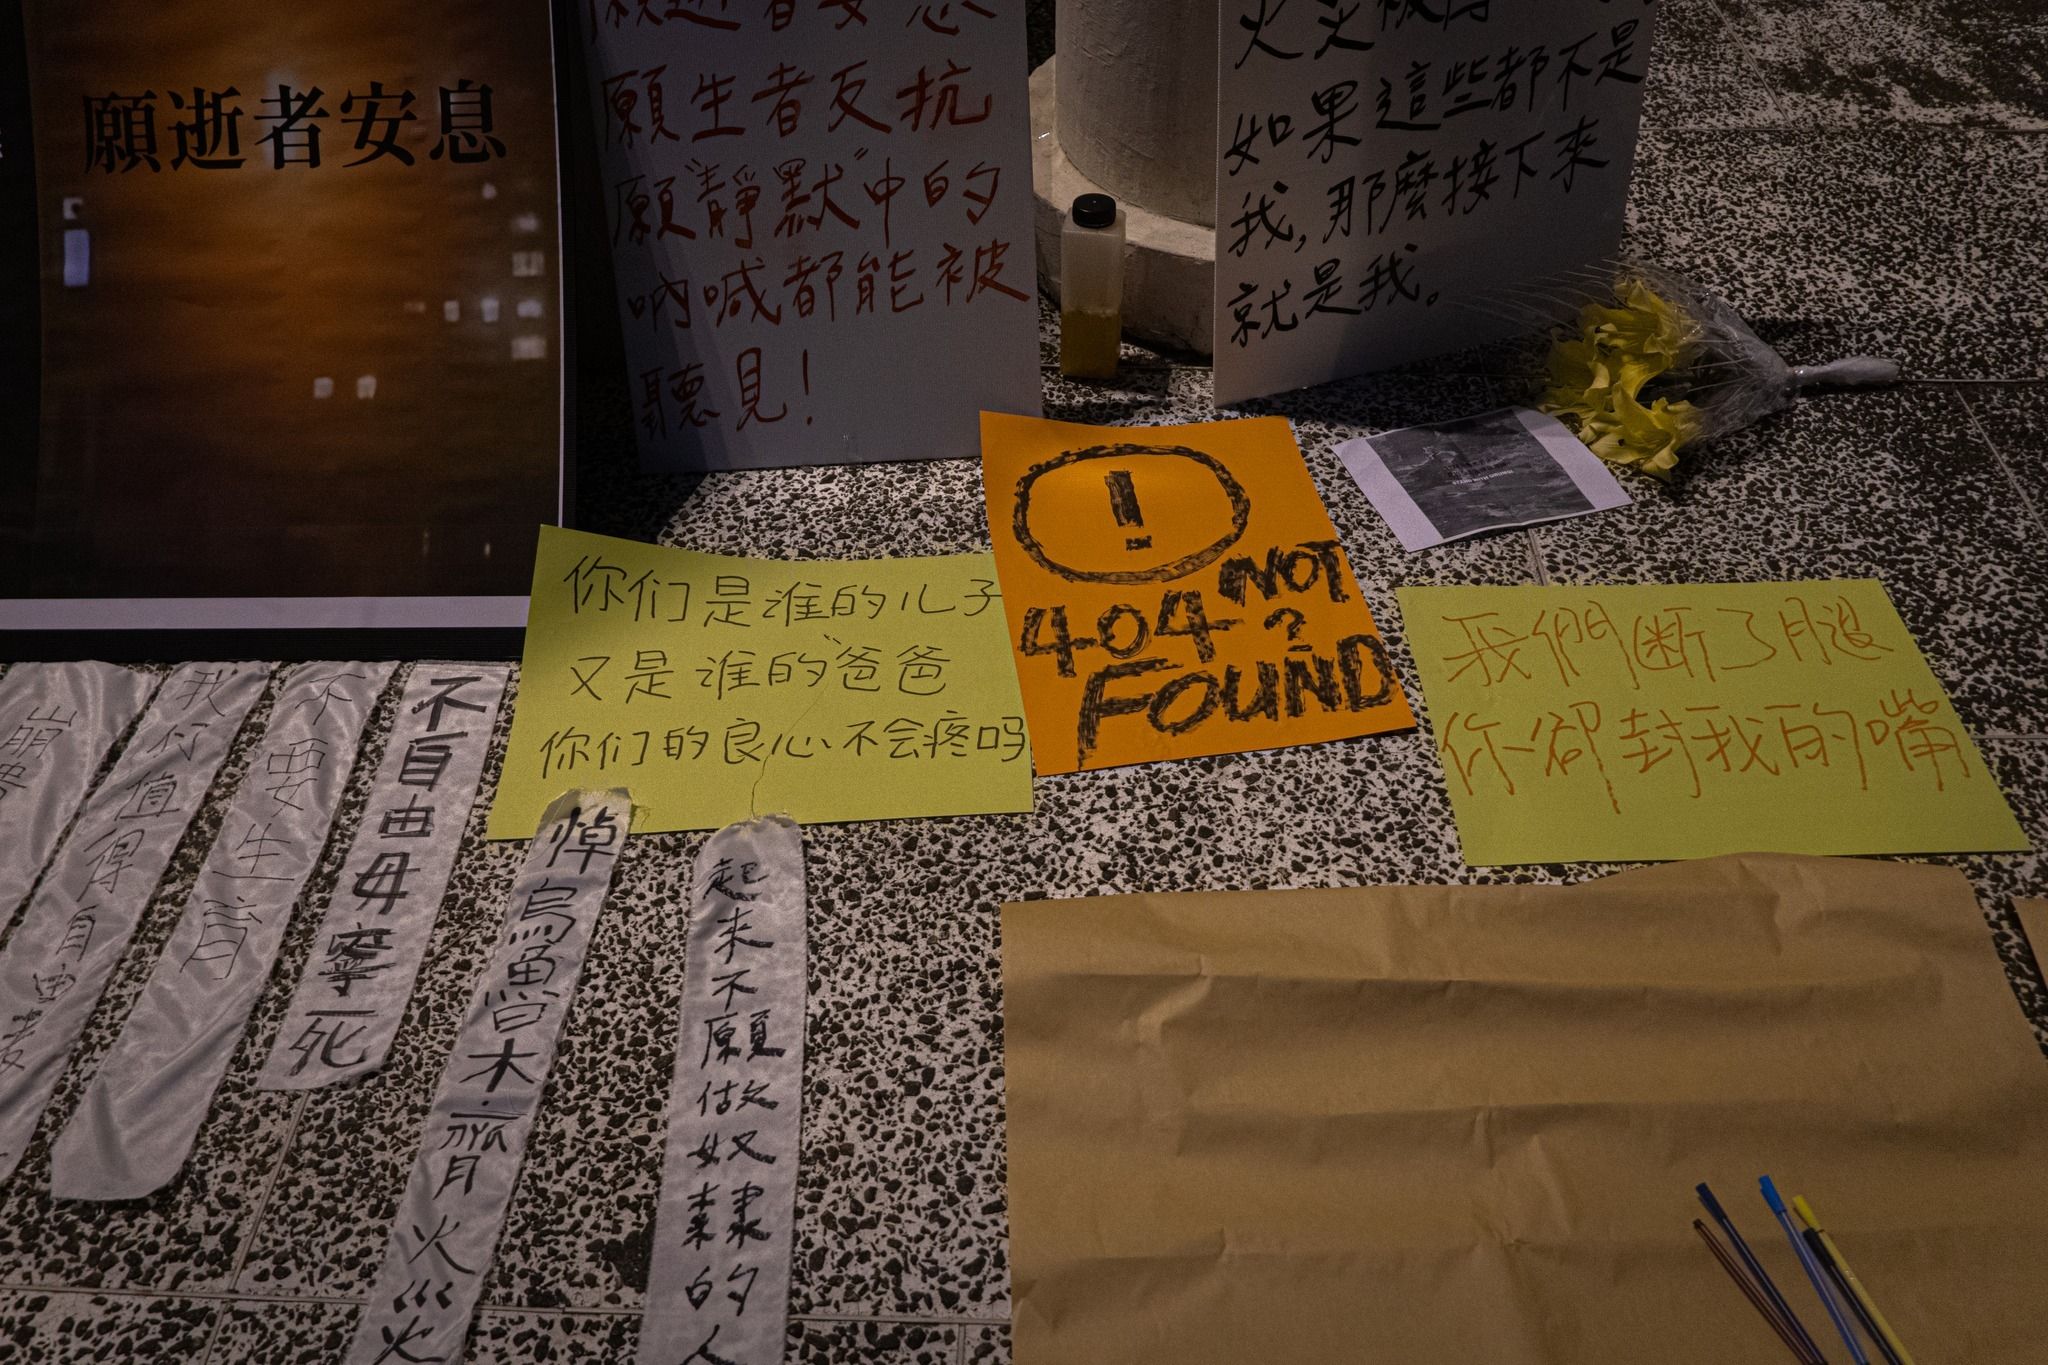 願逝者安息
願逝者安息
願生者反抗
願"靜默"中的
吶喊都能被
聽見!
如果這些都不是
我,那麼接下來
就是我。
!
404 NOT
?
FOUND
你们是谁的儿子
又是谁的"爸爸
你们的良心不会疼吗
我們断了腿
你卻封我的嘴
我们值得自由
不要生育
不自由毋寧死
悼烏魯木齊火災
起来不願做奴隸的人